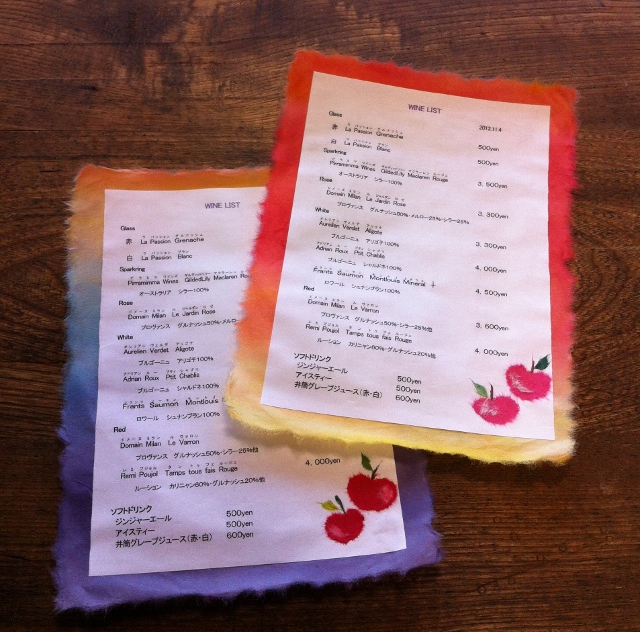 WINE LIST
2012.11.4
Glass
赤 La Passion Grenache 500yen
白 La Passion Blanc 500yen
Sparkring
Pirramimma Wines GildedLily Maclaren Rouge 3,500yen
オーストラリア シラー100%
Rose
Domain Milan Le Jardin Rose 3,300yen
プロヴァンス グルナッシュ50%・メルロー25%・シラー25%
White
Aurelien Verdet Aligote 3,300yen
ブルゴーニュ アリゴテ100%
Adrian Roux Ptit Chablis 4,000yen
ブルゴーニュ シャルドネ100%
Frants Saumon Montlouis Mineral + 4,500yen
ロワール シュナンブラン100%
Red
Domain Milan Le Varron 3,600yen
プロヴァンス グルナッシュ50%・シラー25%他
Remi Poujol Tamps tous fais Rouge 4,000yen
ルーション カリニャン60%・グルナッシュ20%他
ソフトドリンク
ジンジャーエール 500yen
アイスティー 500yen
井筒グレープジュース(赤・白) 600yen
WINE LIST
Glass
赤 La Passion Grenache
白 La Passion Blanc
Sparkring
Pirramimma Wines GildedLily Maclaren Rou
オーストラリア シラー100%
Rose
Domain Milan Le Jardin Rose
プロヴァンス グルナッシュ50%・メルロー
White
Aurelien Verdet Aligote
ブルゴーニュ アリゴテ100%
Adrian Roux Ptit Chablis
ブルゴーニュ シャルドネ100%
Frants Saumon Montlouis
ロワール シュナンブラン100%
Red
Domain Milan Le Varron
プロヴァンス グルナッシュ50%・シラー25%他
Remi Poujol Tamps tous fais Rouge 4,000yen
ルーション カリニャン60%・グルナッシュ20%他
ソフトドリンク
ジンジャーエール 500yen
アイスティー 500yen
井筒グレープジュース(赤・白) 600yen